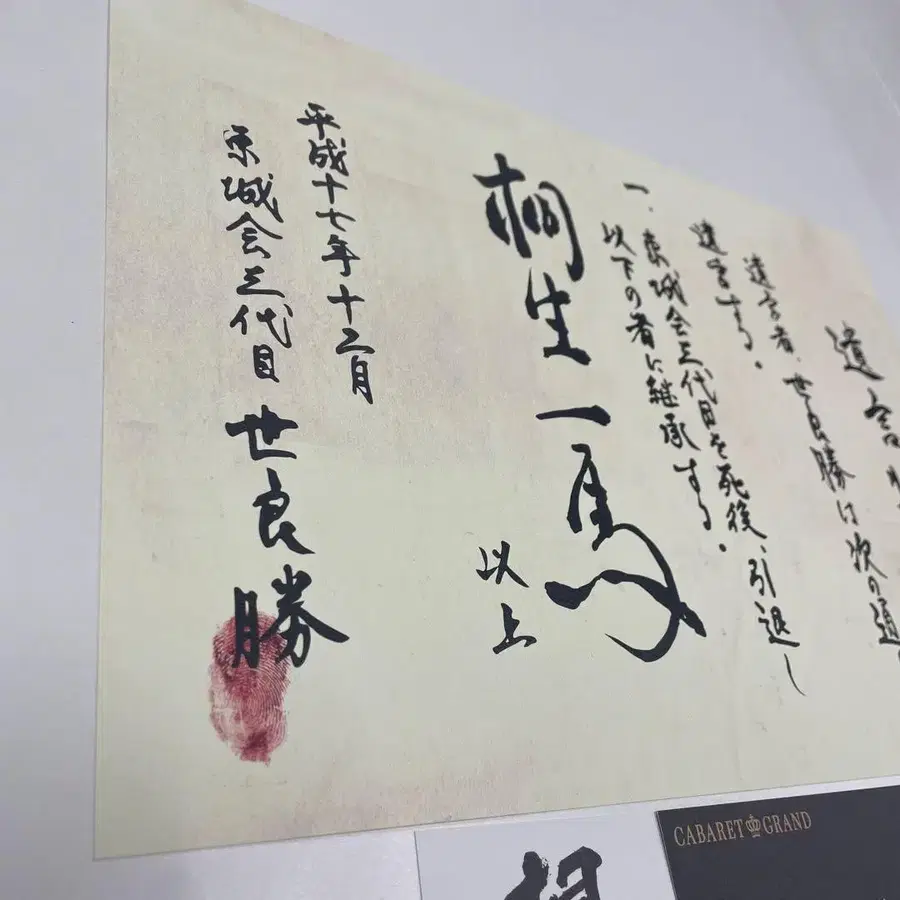 遺言
遺言者、世良勝は次の通
遺言する。
一、東城会三代目を死後、引退し
以下の者に継承する。
桐生一馬
以上
平成十七年十二月
東城会三代目 世良勝
CABARET GRAND